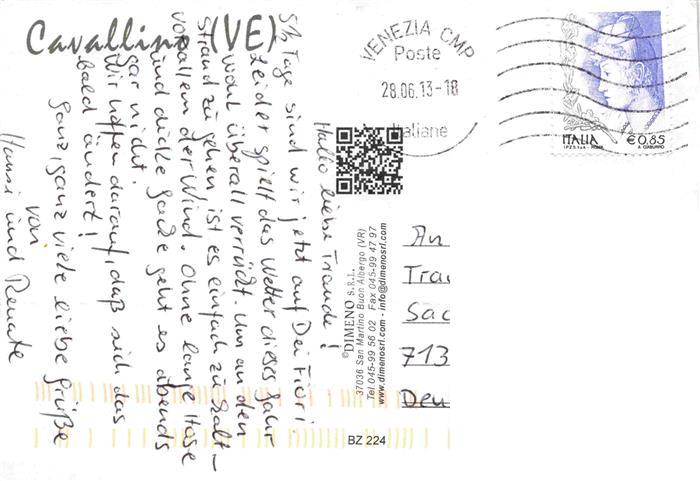 Cavallino (VE)
VENEZIA CMP
Poste
28.06.13-18
Italiane
ITALIA
€0,85
I.P.Z.S. S.p.A. - ROMA
A. CIABURRO
Hallo liebe Traude!
5½ Tage sind wir jetzt auf Dei Fiori.
Leider spielt das Wetter dieses Jahr
wohl überall verrückt. Um an den
Strand zu gehen ist es einfach zu kalt –
vor allem der Wind. Ohne lange Hose
und dicke Jacke geht es abends
gar nicht.
Wir hoffen darauf, daß sich das
bald ändert!
Ganz, ganz viele liebe Grüße
von
Hansi und Renate
©DIMENO S.R.L.
37036 San Martino Buon Albergo (VR)
Tel.045-99 56 02 Fax 045-99 47 97
www.dimenosrl.com - info@dimenosrl.com
An
Trau
Sac
713
Deu
BZ 224